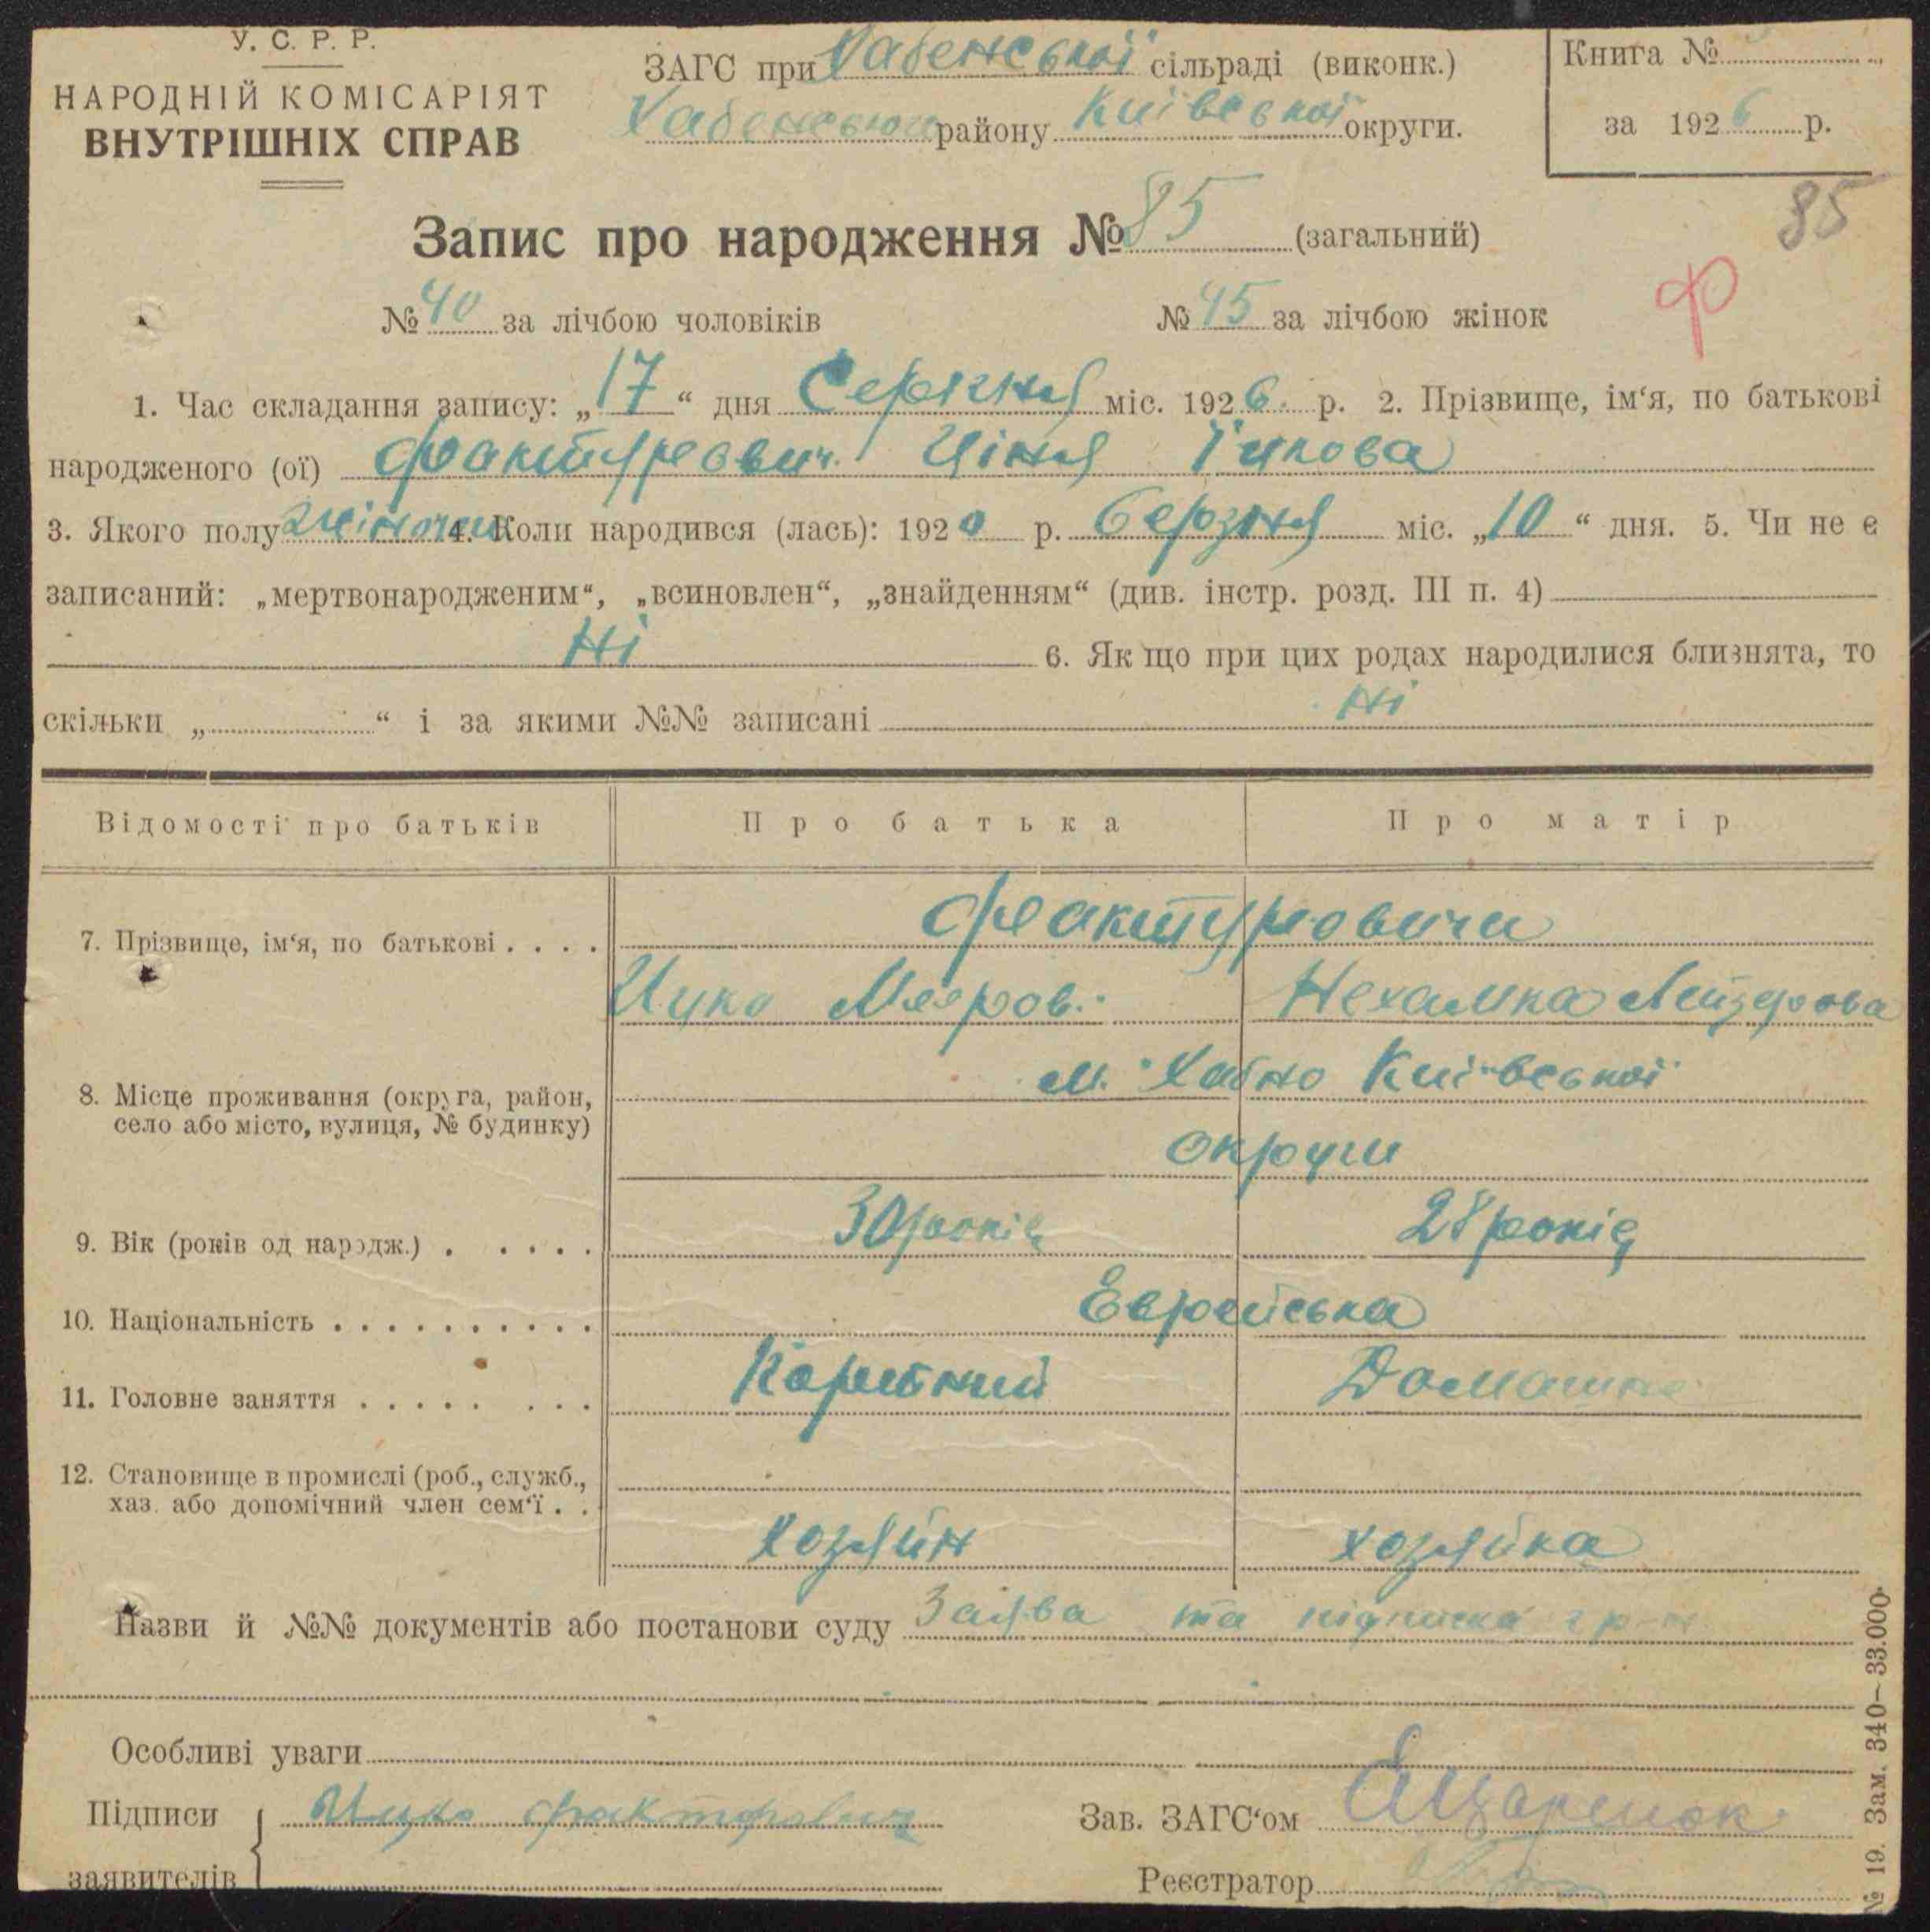 У. С. Р. Р.
НАРОДНІЙ КОМІСАРІЯТ
ВНУТРІШНІХ СПРАВ
ЗАГС при Хабенської сільраді (виконк.)
Хабенського району Київської округи.
Книга №
за 1926 р.
Запис про народження № 85 (загальний)
85
ф
№ 40 за лічбою чоловіків № 45 за лічбою жінок
1. Час складання запису: „17“ дня Серпня міс. 1926 р. 2. Прізвище, ім‘я, по батькові
народженого (ої) Фактурович Ціня Іцкова
3. Якого полу жіночи 4. Коли народився (лась): 1920 р. березня міс. „10“ дня. 5. Чи не є
записаний: „мертвонародженим“, „всиновлен“, „знайденням“ (див. інстр. розд. III п. 4)
Ні 6. Як що при цих родах народилися близнята, то
скільки „ “ і за якими №№ записані Ні
Відомості про батьків Про батька Про матір
7. Прізвище, ім‘я, по батькові Фактуровичи
Ицко Меєров. Нехамка Лейзерова
8. Місце проживання (округа, район,
село або місто, вулиця, № будинку)
м. Хабно Київської
округи
9. Вік (років од народж.) 30 років 28 років
10. Національність Еврейська
11. Головне заняття Домашнє
12. Становище в промислі (роб., служб.,
хаз. або допомічний член сем‘ї
хозяйн хозяйка
Назви й №№ документів або постанови суду Заява та підписка гр-н
Особливі уваги
Підписи
заявителів
Ицко Факторович
Зав. ЗАГС‘ом
Реєстратор
№ 19. Зам. 340—33.000.